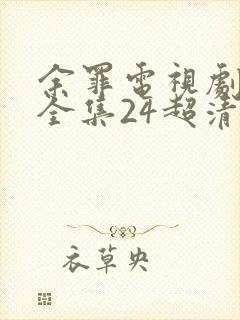 余罪電視劇
全集24超清
衣草央